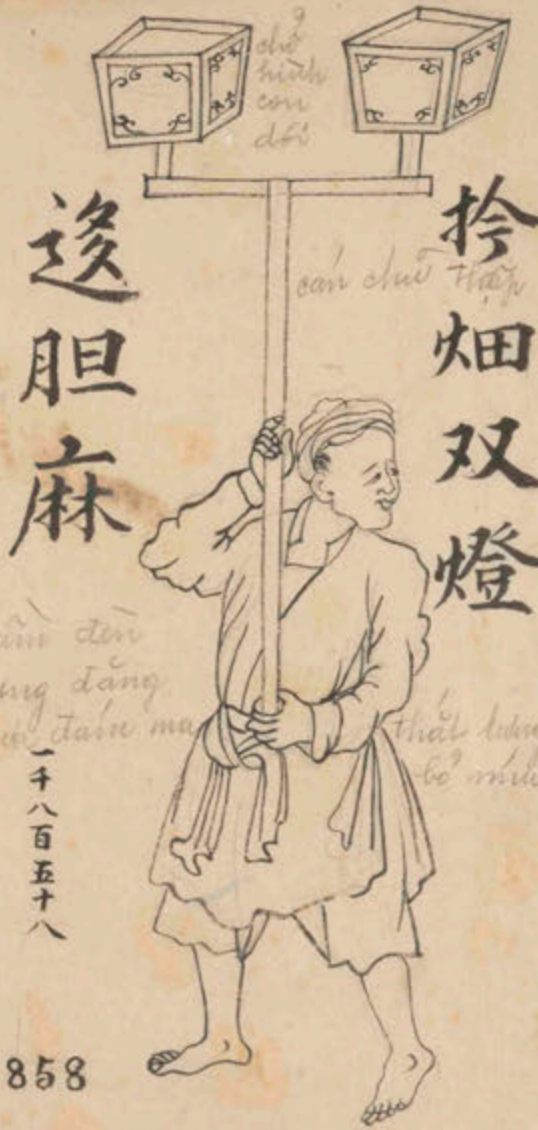 chỗ
hình
con
dơi
扲畑双燈
迻胆麻
cán chữ Thập
đèn
đăng
đám ma
thắt lưng
bỏ múi
一千八百五十八
858